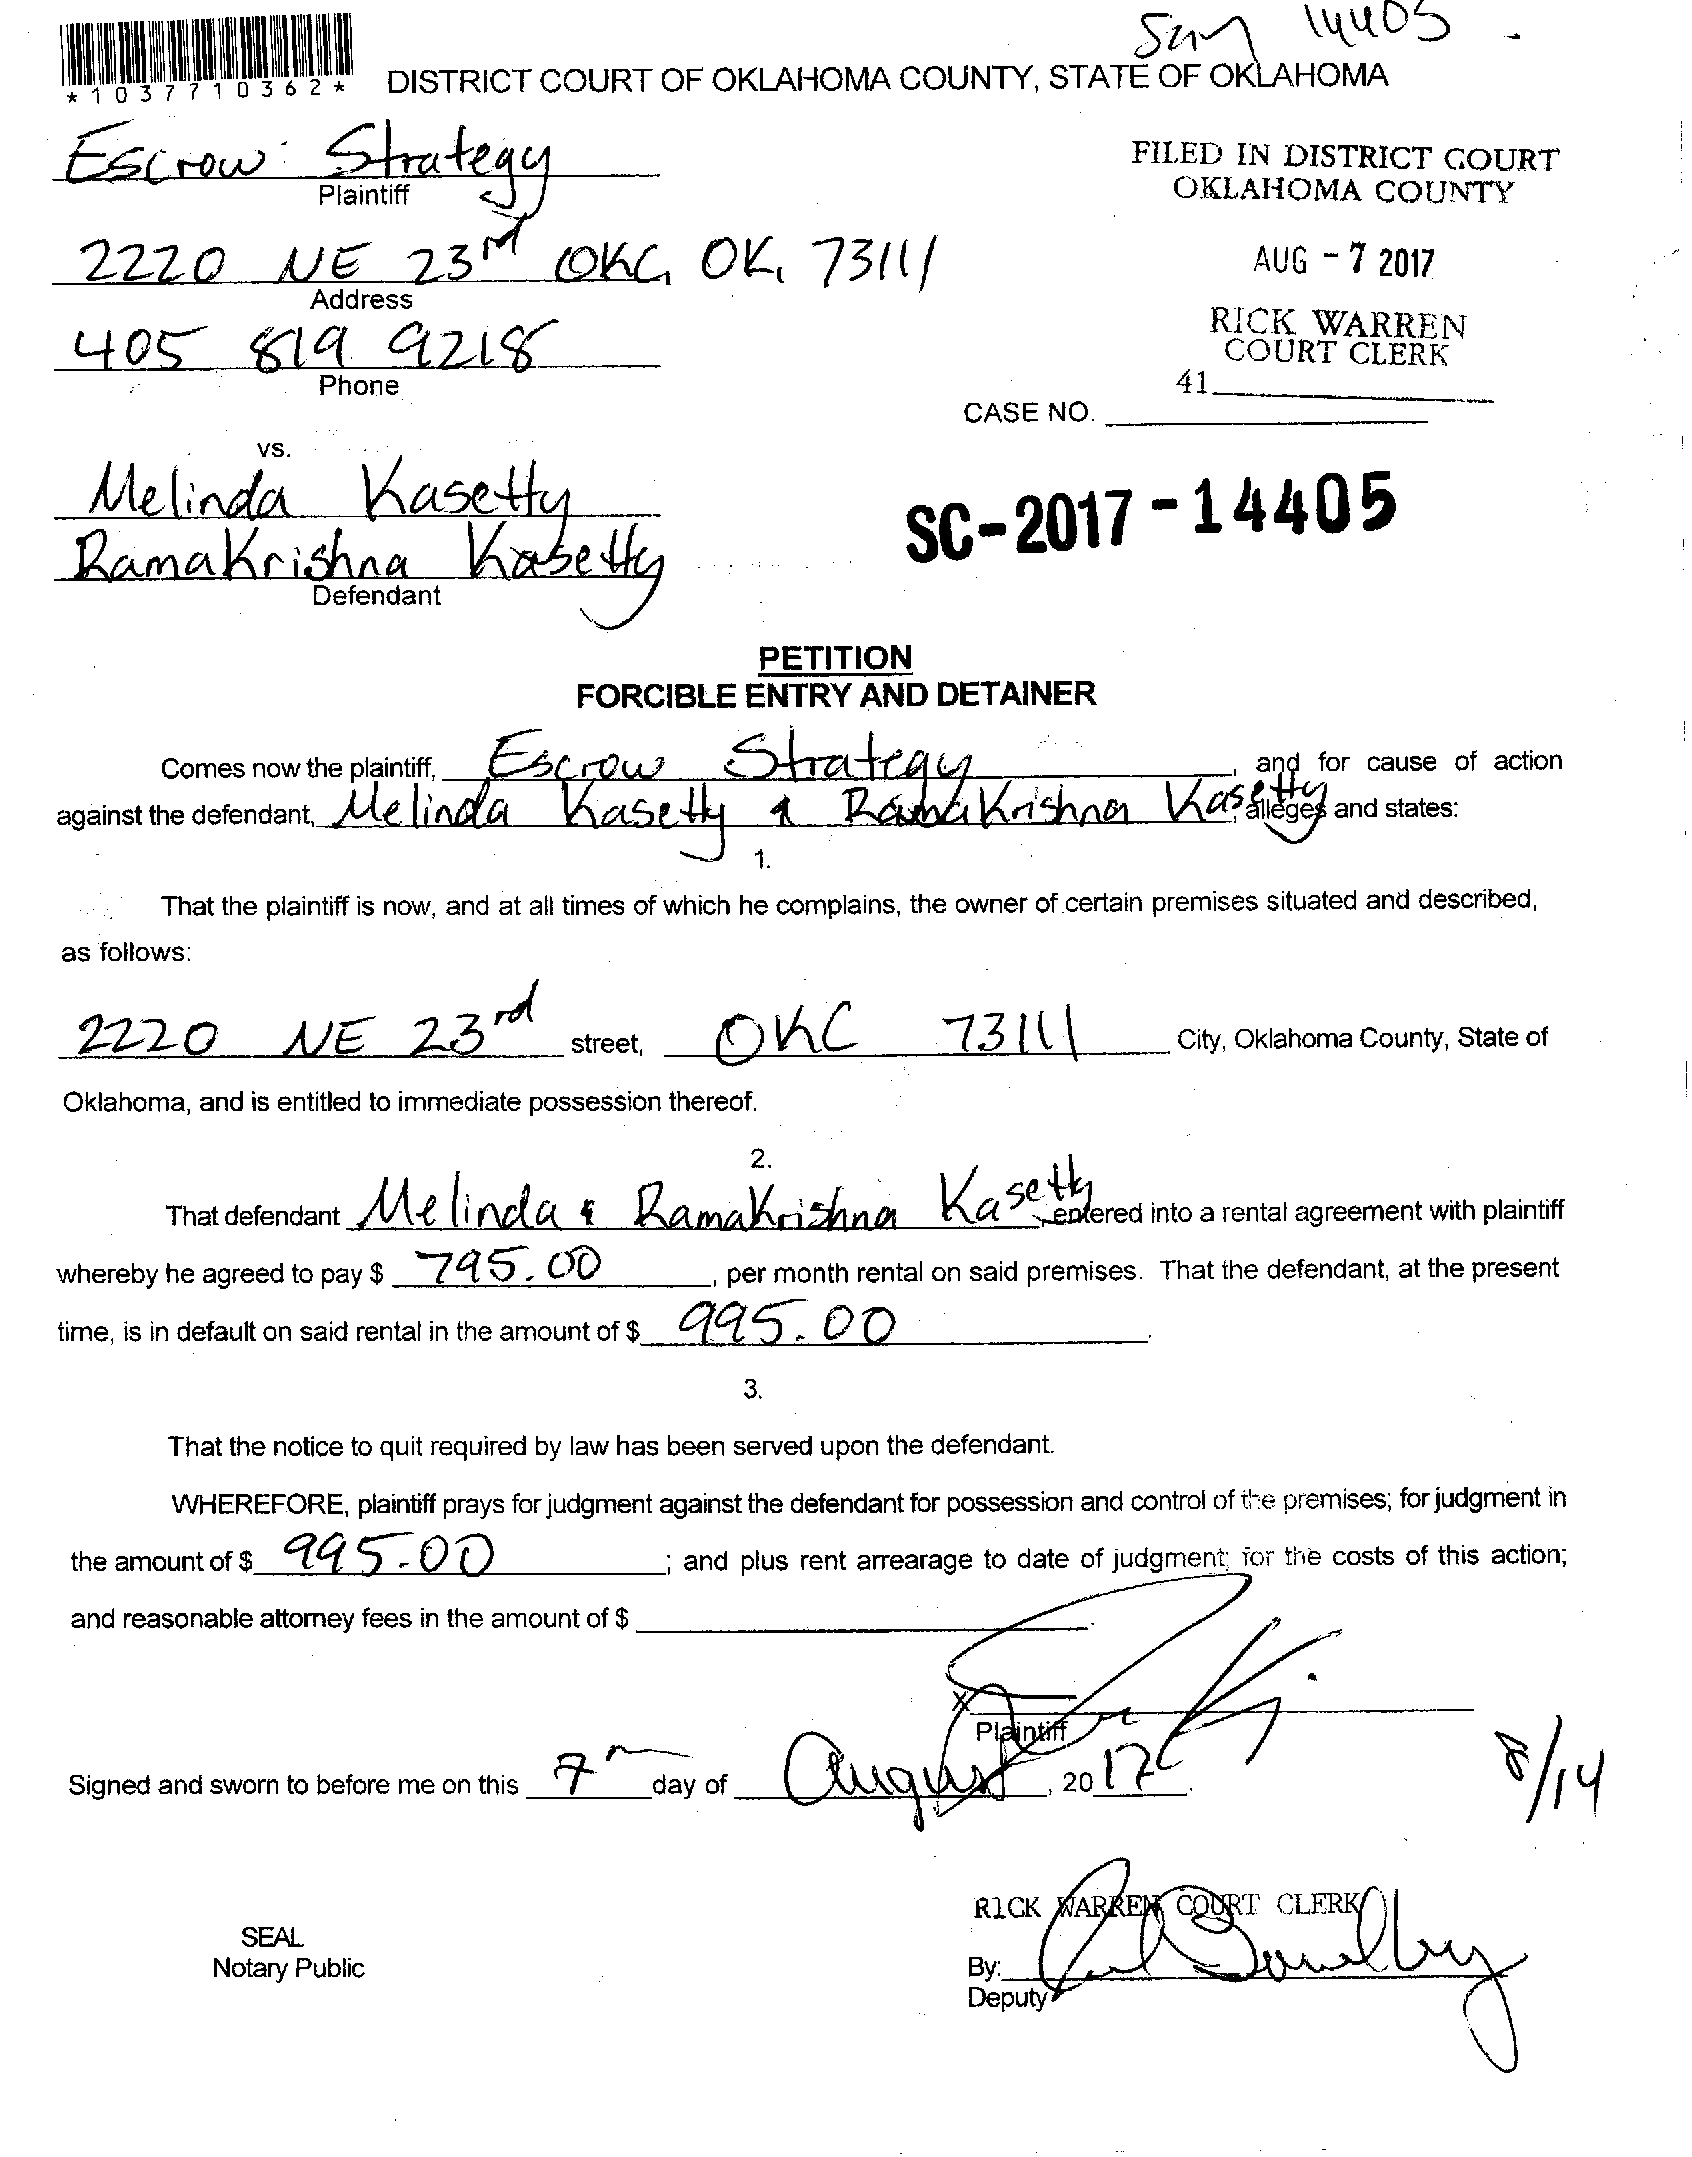 14405
*1037710362*
DISTRICT COURT OF OKLAHOMA COUNTY, STATE OF OKLAHOMA
Escrow Strategy
Plaintiff
FILED IN DISTRICT COURT
OKLAHOMA COUNTY
2220 NE 23rd OKC, OK, 73111
Address
AUG - 7 2017
405 819 9218
Phone
RICK WARREN
COURT CLERK
41
CASE NO.
vs.
Melinda Kasetty
RamaKrishna Kasetty
Defendant
SC-2017-14405
PETITION
FORCIBLE ENTRY AND DETAINER
Comes now the plaintiff, Escrow Strategy, and for cause of action
against the defendant, Melinda Kasetty & RamaKrishna Kasetty, alleges and states:
1.
That the plaintiff is now, and at all times of which he complains, the owner of certain premises situated and described,
as follows:
2220 NE 23rd street, OKC 73111 City, Oklahoma County, State of
Oklahoma, and is entitled to immediate possession thereof.
2.
That defendant Melinda & RamaKrishna Kasetty, entered into a rental agreement with plaintiff
whereby he agreed to pay $ 795.00, per month rental on said premises. That the defendant, at the present
time, is in default on said rental in the amount of $ 995.00.
3.
That the notice to quit required by law has been served upon the defendant.
WHEREFORE, plaintiff prays for judgment against the defendant for possession and control of the premises; for judgment in
the amount of $ 995.00; and plus rent arrearage to date of judgment; for the costs of this action;
and reasonable attorney fees in the amount of $
x
Plaintiff
Signed and sworn to before me on this 7th day of August, 2017.
8/14
RICK WARREN COURT CLERK
SEAL
Notary Public
By:
Deputy